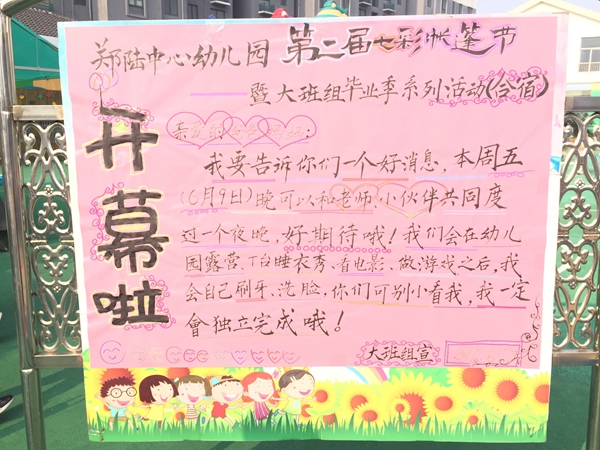 郑陆中心幼儿园 第二届七彩帐篷节
暨大班组毕业季系列活动(合宿)
开幕啦
亲爱的爸爸妈妈:
我要告诉你们一个好消息,本周五
(6月9日)晚可以和老师、小伙伴共同度
过一个夜晚,好期待哦!我们会在幼儿
园露营、T台睡衣秀、看电影、做游戏之后,我
会自己刷牙、洗脸,你们可别小看我,我一定
會独立完成哦!
大班组宣